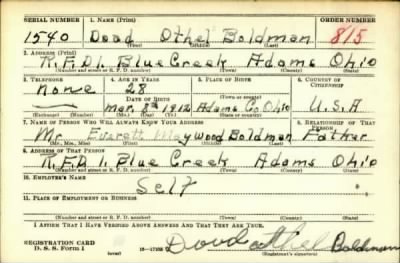 SERIAL NUMBER 1. NAME (Print) ORDER NUMBER
1540 Doad Othel Boldman 815
(First) (Middle) (Last)
2. ADDRESS (Print)
R.F.D1. Blue Creek Adams Ohio
(Number and street or R. F. D. number) (Town) (County) (State)
3. TELEPHONE 4. AGE IN YEARS 5. PLACE OF BIRTH 6. COUNTRY OF CITIZENSHIP
None 28
DATE OF BIRTH (Town or county)
Mar. 8th 1912 Adams Co, Ohio U.S.A
(Exchange) (Number) (Mo.) (Day) (Yr.) (State or country)
7. NAME OF PERSON WHO WILL ALWAYS KNOW YOUR ADDRESS 8. RELATIONSHIP OF THAT PERSON
Mr. Everett Maywood Boldman Father
(Mr., Mrs., Miss) (First) (Middle) (Last)
9. ADDRESS OF THAT PERSON
R.F.D 1. Blue Creek Adams Ohio
(Number and street or R. F. D. number) (Town) (County) (State)
10. EMPLOYER'S NAME
Self
11. PLACE OF EMPLOYMENT OR BUSINESS
(Number and street or R. F. D. number) (Town) (County) (State)
I AFFIRM THAT I HAVE VERIFIED ABOVE ANSWERS AND THAT THEY ARE TRUE.
REGISTRATION CARD
D. S. S. Form 1 Doad othel Boldman
(Registrant's signature)